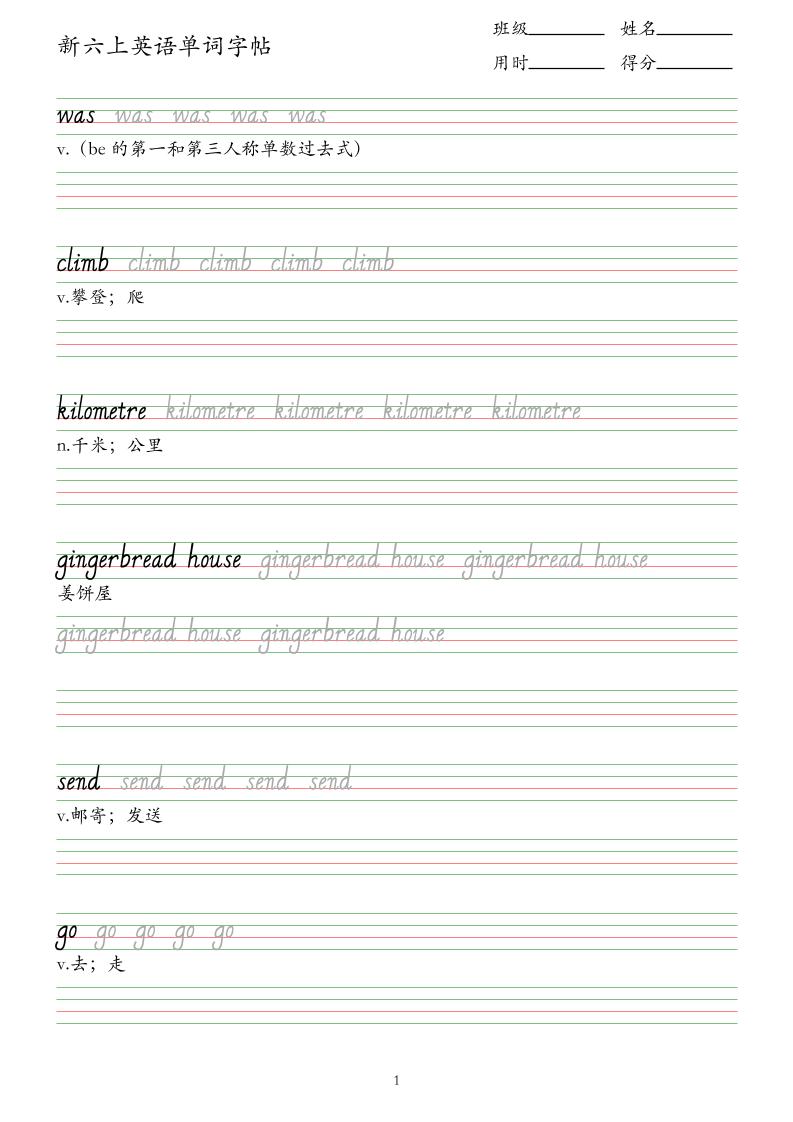 新六上英语单词字帖
班级 姓名
用时 得分
was was was was was
v.（be 的第一和第三人称单数过去式）
climb climb climb climb climb
v.攀登；爬
kilometre kilometre kilometre kilometre kilometre
n.千米；公里
gingerbread house gingerbread house gingerbread house
姜饼屋
gingerbread house gingerbread house
send send send send send
v.邮寄；发送
go go go go go
v.去；走
1